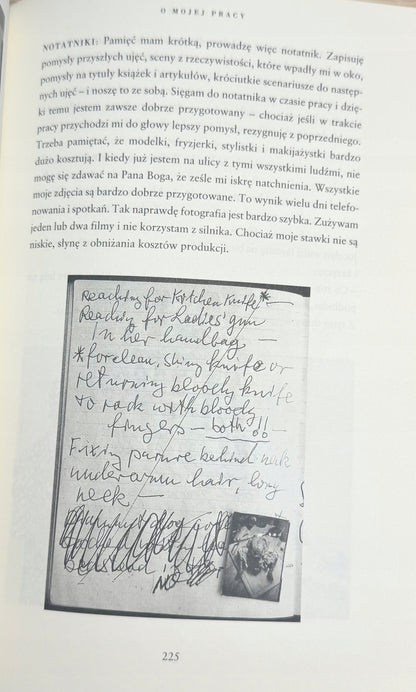 O MOJEJ PRACY
NOTATNIKI: Pamięć mam krótką, prowadzę więc notatnik. Zapisuję
pomysły przyszłych ujęć, sceny z rzeczywistości, które wpadły mi w oko,
pomysły na tytuły książek i artykułów, króciutkie scenariusze do następ-
nych ujęć – i noszę to ze sobą. Sięgam do notatnika w czasie pracy i dzię-
ki temu jestem zawsze dobrze przygotowany – chociaż jeśli w trakcie
pracy przychodzi mi do głowy lepszy pomysł, rezygnuję z poprzedniego.
Trzeba pamiętać, że modelki, fryzjerki, stylistki i makijażystki bardzo
dużo kosztują. I kiedy już jestem na ulicy z tymi wszystkimi ludźmi, nie
mogę się zdawać na Pana Boga, że ześle mi iskrę natchnienia. Wszystkie
moje zdjęcia są bardzo dobrze przygotowane. To wynik wielu dni telefo-
nowania i spotkań. Tak naprawdę fotografia jest bardzo szybka. Zużywam
jeden lub dwa filmy i nie korzystam z silnika. Chociaż moje stawki nie są
niskie, słynę z obniżania kosztów produkcji.
Reaching for Kitchen Knife* —
Reaching for Ladies' gun
In her handbag —
*for clean, shiny knife or
returning bloody knife
to rack with bloody
fingers — both!! —
Fixing parure behind neck
underarm hair, long
neck —
NO
225